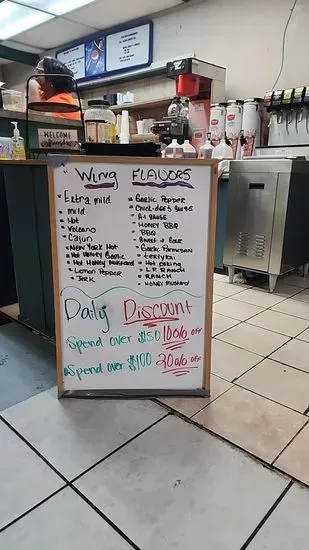 WELCOME
Wing FLAVORS
Extra mild
mild
Hot
Volcano
Cajun
New York Hot
Hot Honey Garlic
Hot Honey mustard
Lemon Pepper
Jerk
Garlic Pepper
A1 SAUSE
HONEY BBQ
BBQ
Sweet & Sour
Garlic Parmesan
teriyaki
L.P. RANCH
RANCH
HONEY Mustard
Daily Discount
Spend over $150 10% OFF
Spend over $100 20% OFF